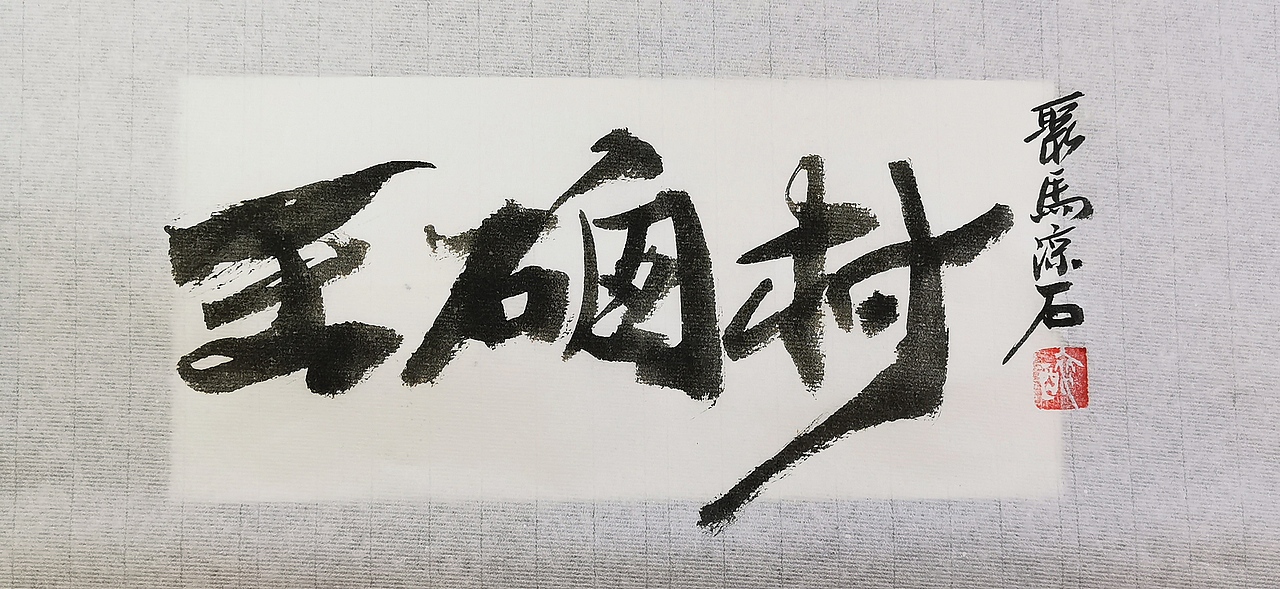 王硇村
聚馬涼石